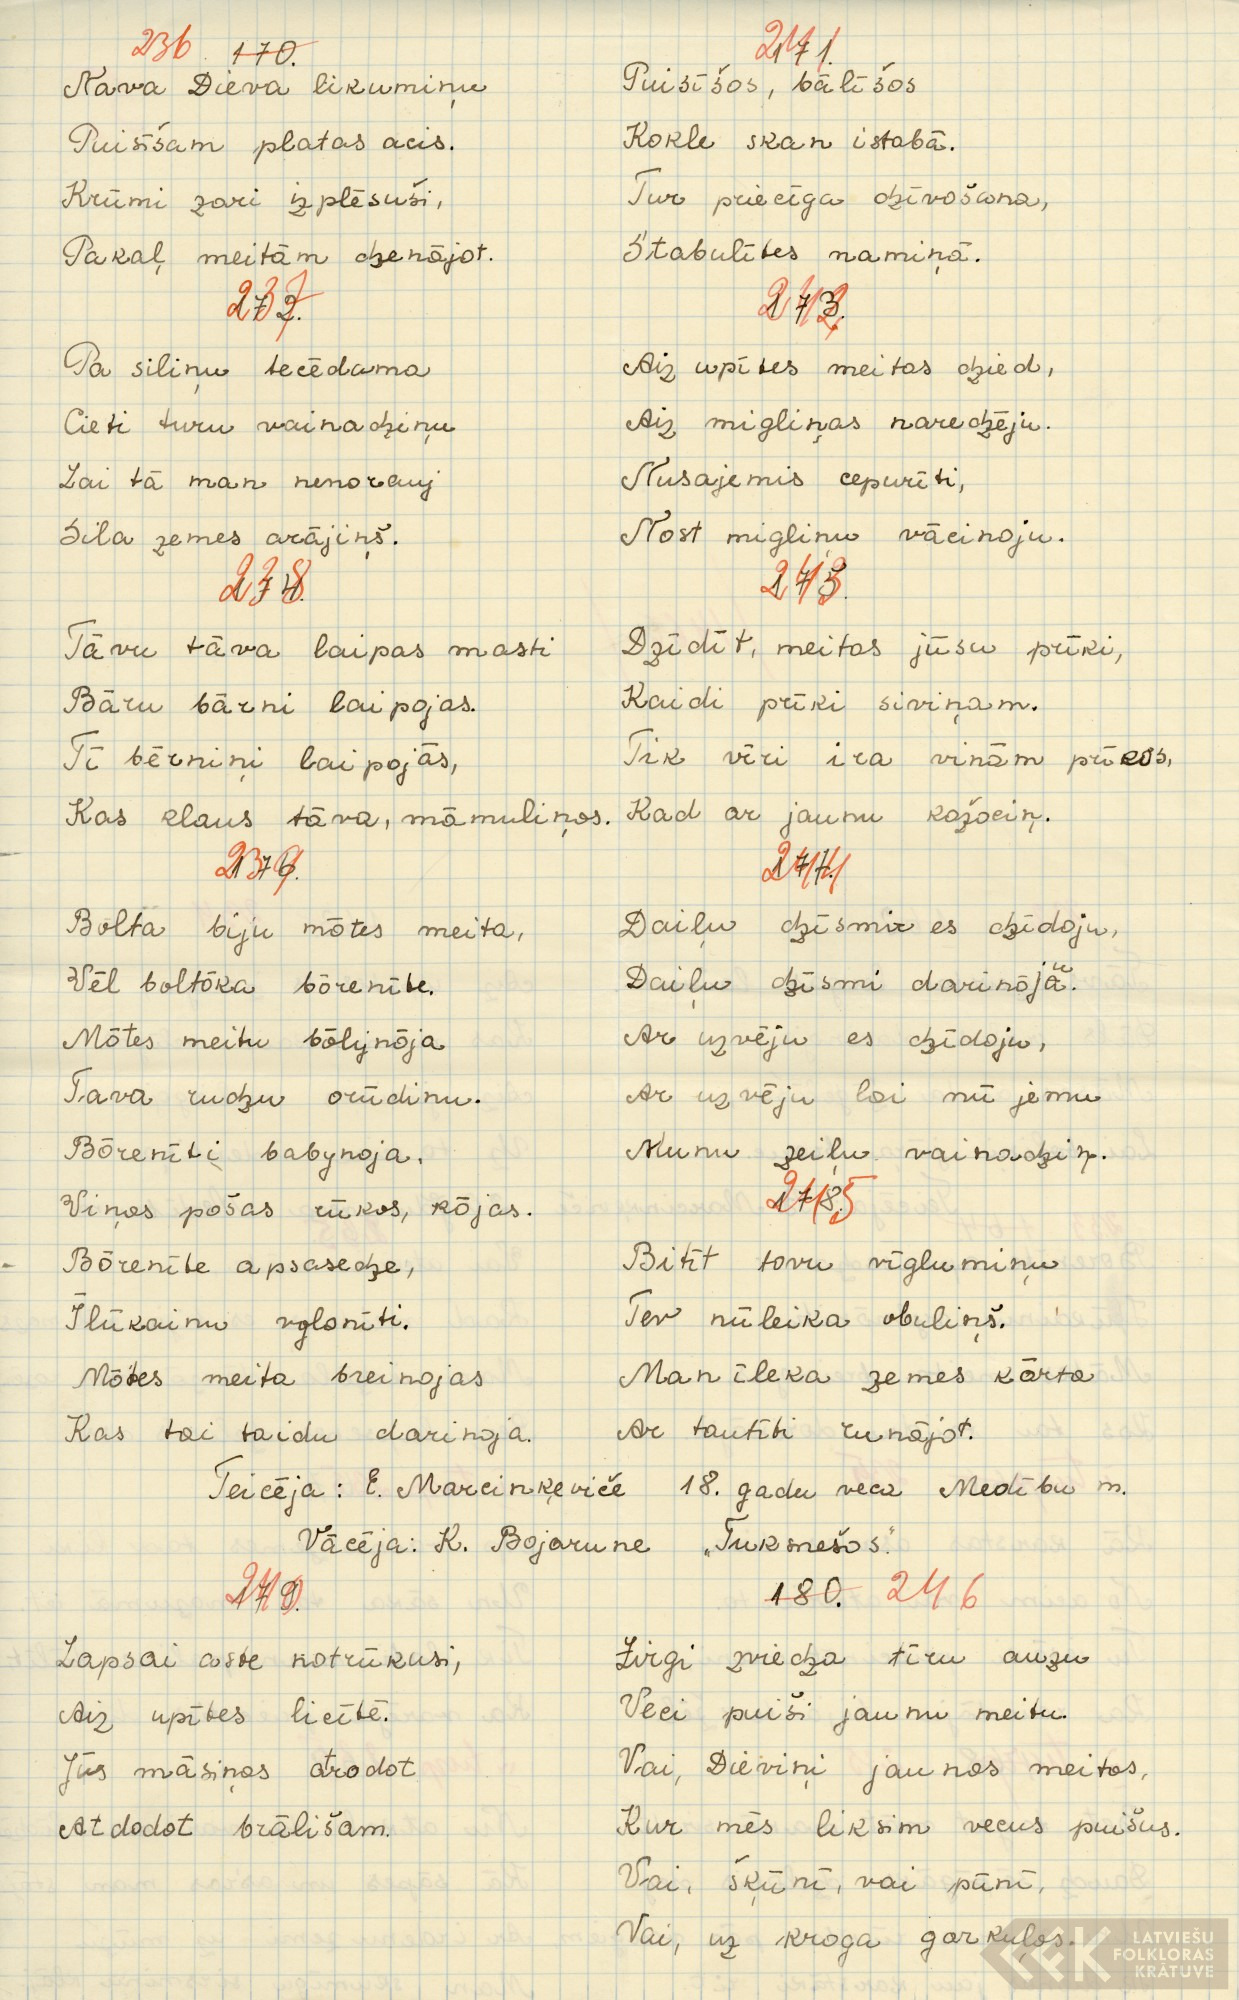 236 170.
Nava Dieva likumiņu
Puisīšam platas acis.
Krūmi zari izplēsuši,
Pakaļ meitām dzenājot.
237 172.
Pa siliņu tecēdama
Cieti turu vainadziņu
Lai tā man nenorauj
Sila zemes arājiņš.
238 174.
Tāvu tāva laipas masti
Bāru bārni laipojas.
Tī bērniņi laipojās,
Kas klaus tāva, māmuliņos.
239 176.
Bolta biju mōtes meita,
Vēl boltōka bōrenīte.
Mōtes meitu bōlynōja
Tava rudzu orūdinu.
Bōrenīti babynoja,
Viņos pošas rūkos, kōjas.
Bōrenīte apsasedze,
Īlūkainu vglonīti.
Mōtes meita breinojas
Kas tai taidu darinoja.
241 171.
Puisīšos, bālīšos
Kokle skan istabā.
Tur priecīga dzīvošana,
Stabulītes namiņā.
242 173.
Aiz upītes meitas dzied,
Aiz migliņas naredzēju.
Nusajemis cepurīti,
Nost migliņu vācinoju.
243 175.
Dzīdīt, meitas jūsu prīki,
Kaidi prīki siviņam.
Tik vīri ira vinām prīkos,
Kad ar jaunu kažociņ.
244 177.
Daiļu dzīsmir es dzīdoju,
Daiļu dzīsmi darinōjā.
Ar uzvēju es dzīdoju,
Ar uzvēju lai nū jemu
Munu zeiļu vainadziņ.
245 178.
Bitīt tovu vīglumiņu
Tev nūleika obuliņš.
Man īleka zemes kārta
Ar tautīti runājot.
Teicēja: E. Marcinķeviče 18. gadu veca Medību m.
Vācēja: K. Bojarune „Tuksnešos."
240 179.
Lapsai aste notrūkusi,
Aiz upītes licītē.
Jūs māsiņos atrodot
Atdodot brālišam.
180. 246
Zirgi zviedza tīru auzu
Veci puiši jaunu meitu.
Vai, Dieviņi jaunos meitos,
Kur mēs liksim vecus puišus.
Vai, šķūnī, vai pūnī,
Vai, uz kroga garkuļos.
LATVIEŠU
FOLKLORAS
KRĀTUVE